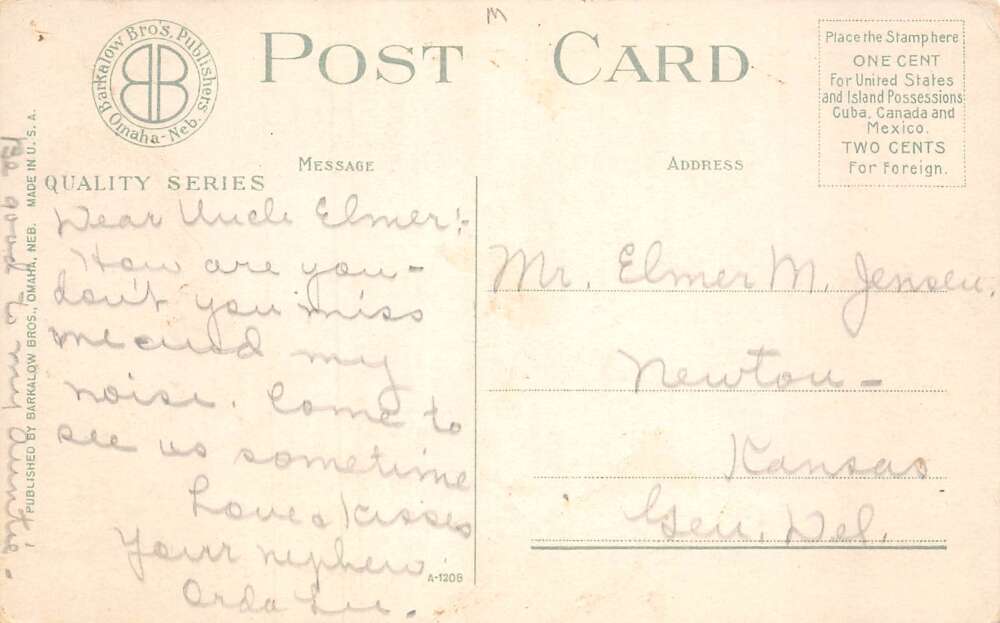 M
Barkalow Bro's. Publishers
Omaha-Neb.
POST CARD
Place the Stamp here
ONE CENT
For United States
and Island Possessions
Cuba, Canada and
Mexico.
TWO CENTS
For Foreign.
MESSAGE
ADDRESS
QUALITY SERIES
Dear Uncle Elmer:-
How are you-
don't you miss
me and my
noise. Come to
see us sometime
Love & Kisses
Your nephew
Orda Lee.
Mr. Elmer M. Jensen.
Newton-
Kansas
Gen. Del.
A-1206
PUBLISHED BY BARKALOW BROS., OMAHA, NEB. MADE IN U. S. A.
Be good to my Auntie-